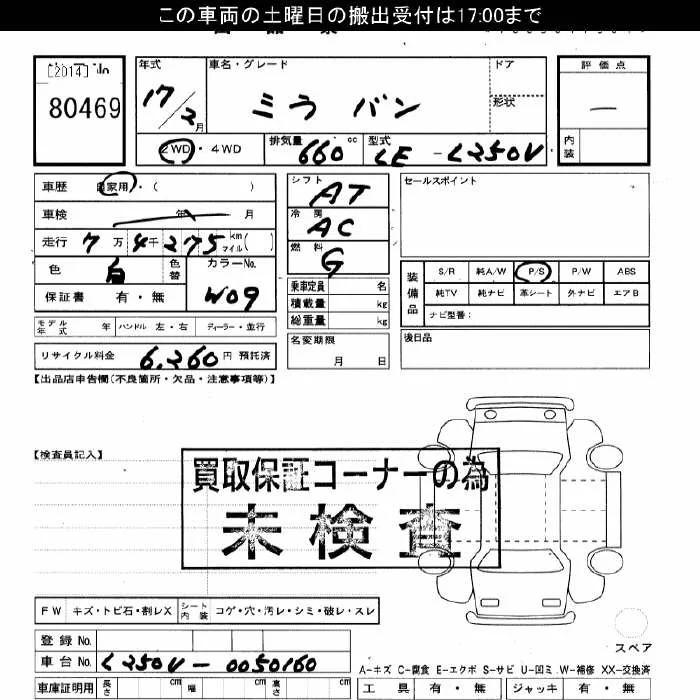 この車両の土曜日の搬出受付は17:00まで
[2014] No
80469
年式 17/2月
車名・グレード ミラ バン
ドア
形状
評価点 —
内装
2WD・4WD
排気量 660 cc
型式 LE-L250V
車歴 自家用・( )
車検 年 月
走行 7万4千275 km マイル( )
色 白 色替
カラーNo. W09
保証書 有・無
シフト AT
冷房 AC
燃料 G
乗車定員 名
積載量 kg
総重量 kg
セールスポイント
装備品
S/R 純A/W P/S P/W ABS
純TV 純ナビ 革シート 外ナビ エアB
ナビ型番:
モデル年式 年 ハンドル 左・右 ディーラー・並行
名変期限 月 日
後日品
リサイクル料金 6,260円 預託済
【出品店申告欄(不良箇所・欠品・注意事項等)】
【検査員記入】
買取保証コーナーの為
未検査
FW キズ・トビ石・割レX
シート内装 コゲ・穴・汚レ・シミ・破レ・スレ
スペア
登録No.
車台No. L250V-0050160
A-キズ C-腐食 E-エクボ S-サビ U-凹ミ W-補修 XX-交換済
車庫証明用 長さ cm 幅 cm 高さ cm
工具 有・無 ジャッキ 有・無